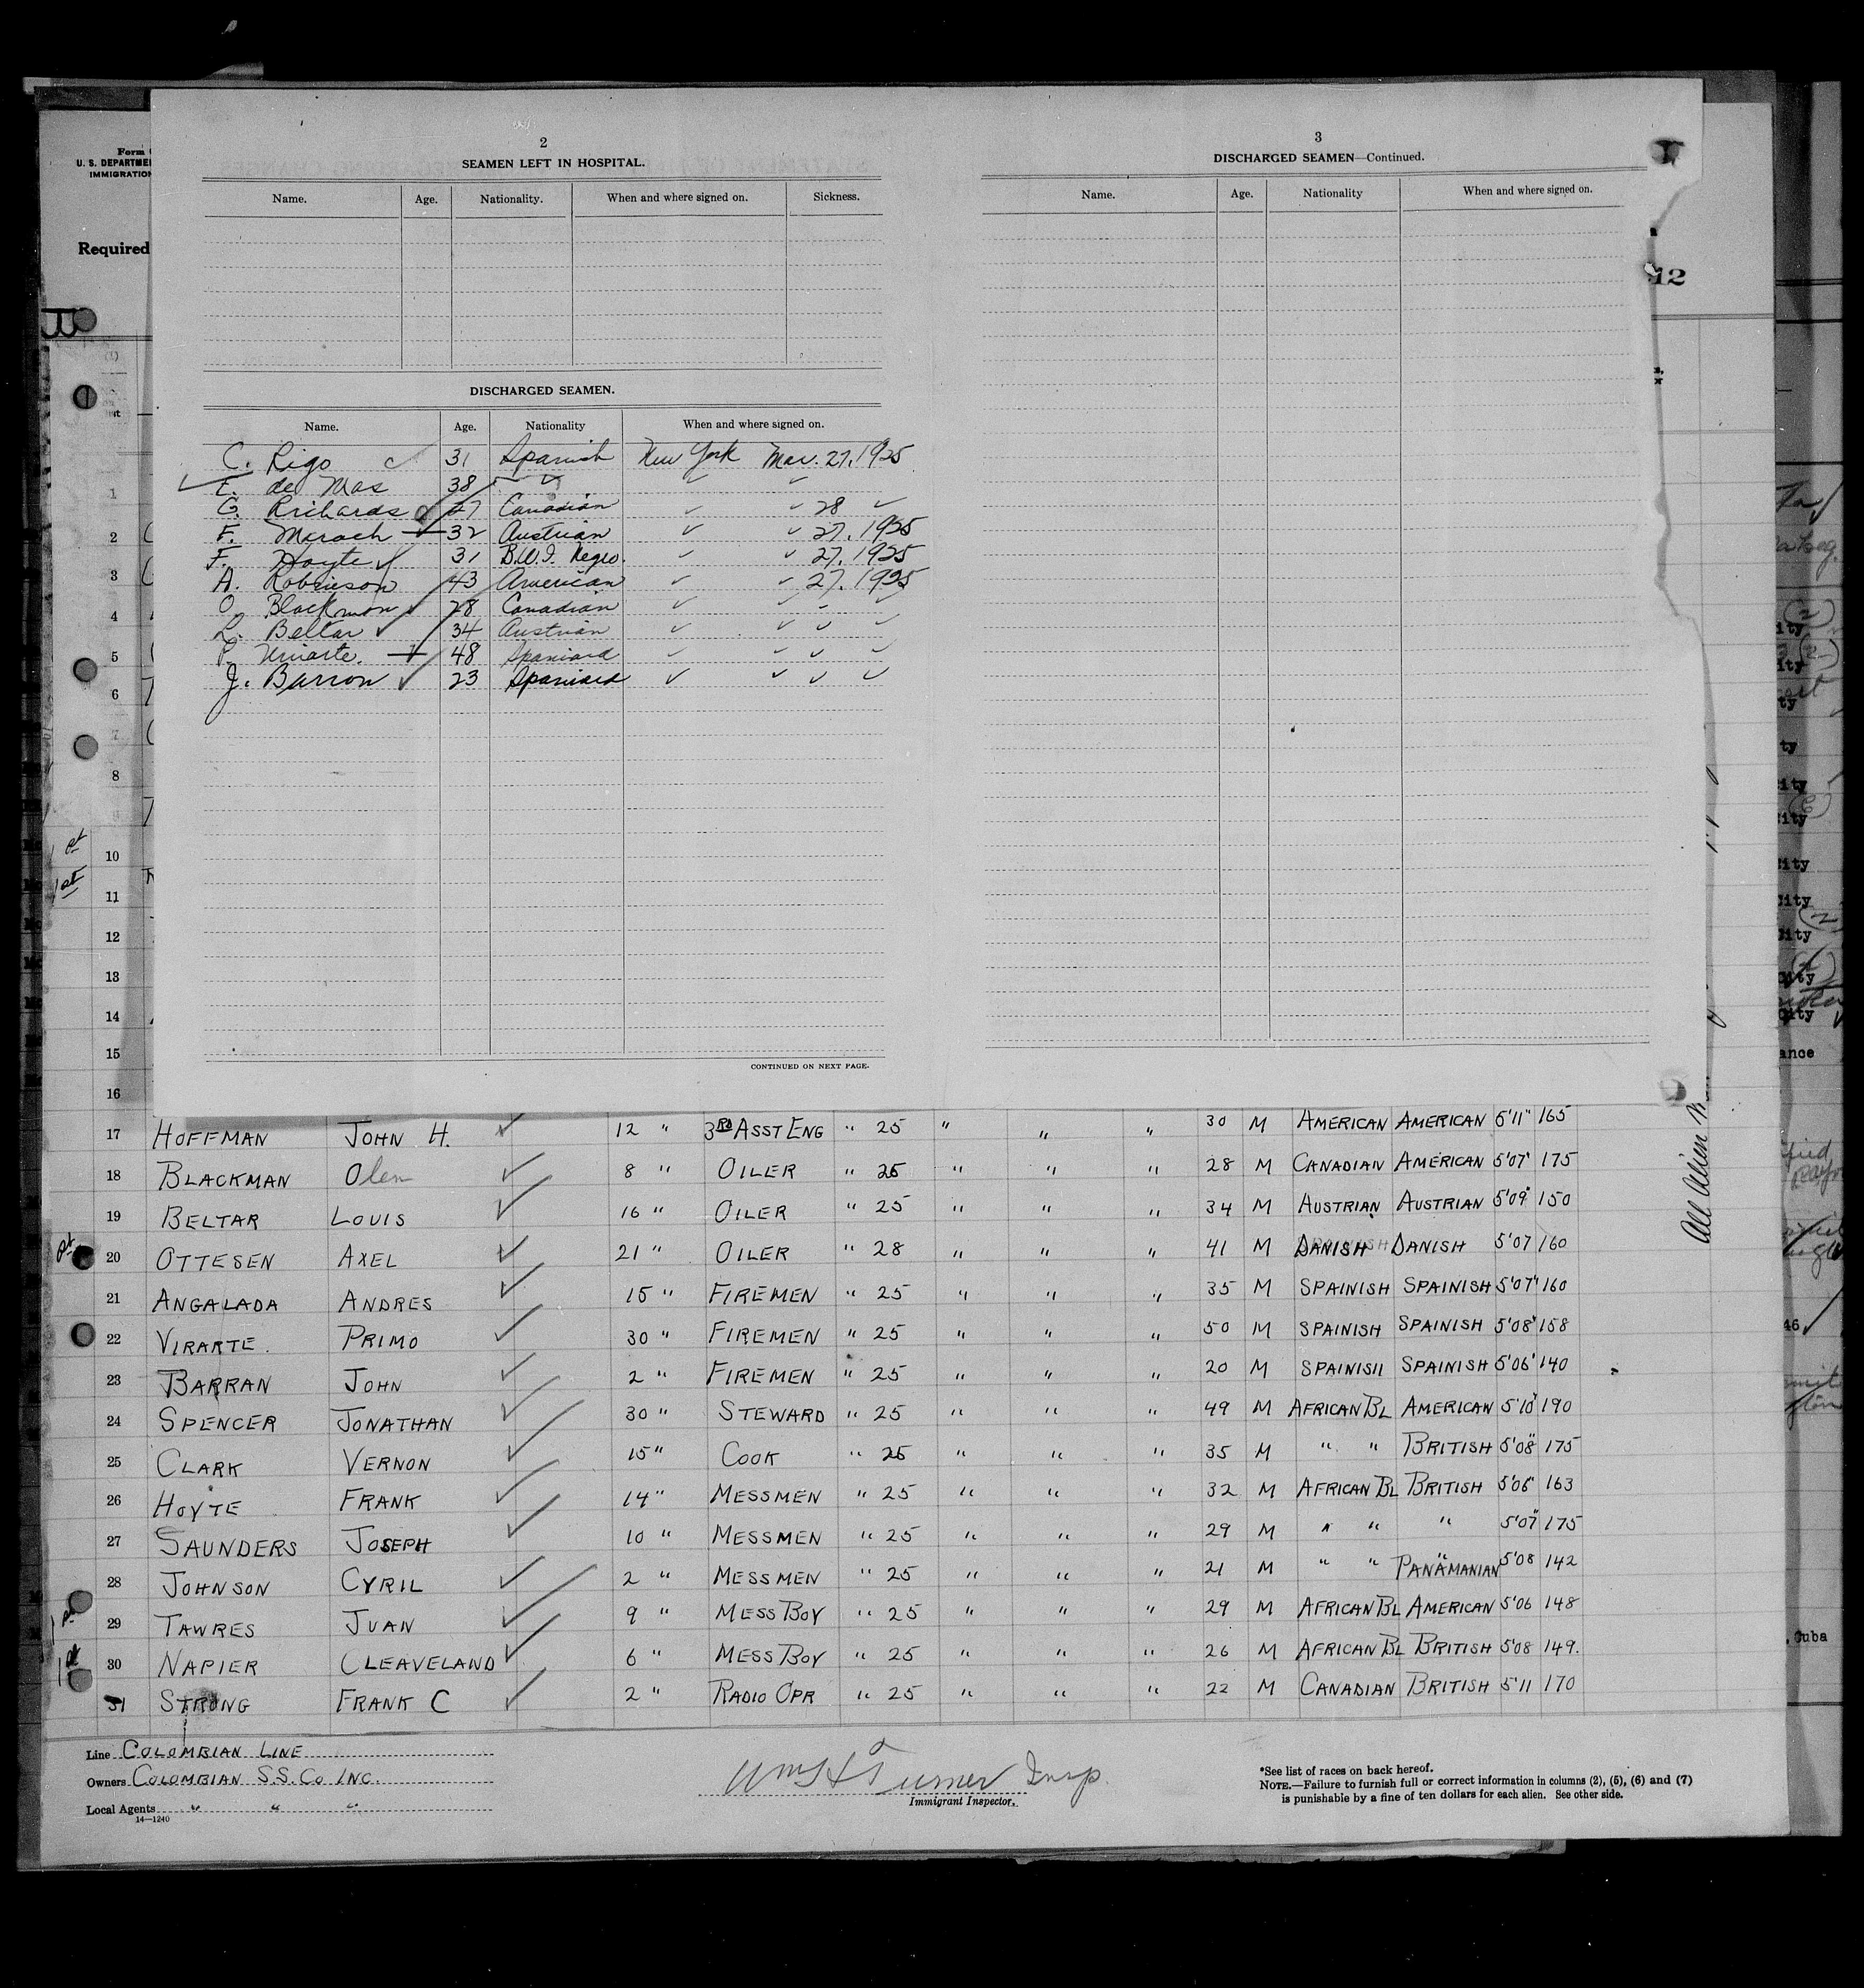 Form
U. S. DEPARTME
IMMIGRATION
Required
12
2
SEAMEN LEFT IN HOSPITAL.
Name. Age. Nationality. When and where signed on. Sickness.
DISCHARGED SEAMEN.
Name. Age. Nationality When and where signed on.
C. Rigo 31 Spanish New York Mar. 27, 1925
E. de Mas 38 " " "
G. Richards 27 Canadian " " 28 "
F. Marach 32 Austrian " " 27, 1925
F. Hoyte 31 B.W.I. Negro. " " 27, 1925
A. Robinson 43 American " " 27, 1925
O. Blackmon 28 Canadian " " " "
L. Beltar 34 Austrian " " " "
P. Uriarte. 48 Spaniard " " " "
J. Barron 23 Spaniard " " " "
CONTINUED ON NEXT PAGE.
3
DISCHARGED SEAMEN—Continued.
Name. Age. Nationality When and where signed on.
1
2
3
4
5
6
7
8
9
10
11
12
13
14
15
16
17 HOFFMAN JOHN H. 12 " 3RD ASST ENG " 25 " " " 30 M AMERICAN AMERICAN 5'11" 165
18 BLACKMAN Olen 8 " OILER " 25 " " " 28 M CANADIAN AMERICAN 5'07" 175
19 BELTAR LOUIS 16 " OILER " 25 " " " 34 M AUSTRIAN AUSTRIAN 5'09" 150
20 OTTESEN AXEL 21 " OILER " 28 " " " 41 M DANISH DANISH 5'07 160
21 ANGALADA ANDRES 15 " FIREMEN " 25 " " " 35 M SPAINISH SPAINISH 5'07" 160
22 VIRARTE. PRIMO 30 " FIREMEN " 25 " " " 50 M SPAINISH SPAINISH 5'08" 158
23 BARRAN JOHN 2 " FIREMEN " 25 " " " 20 M SPAINISH SPAINISH 5'06" 140
24 SPENCER JONATHAN 30 " STEWARD " 25 " " " 49 M AFRICAN BL AMERICAN 5'10" 190
25 CLARK VERNON 15 " COOK " 25 " " " 35 M " " BRITISH 5'08" 175
26 HOYTE FRANK 14 " MESSMEN " 25 " " " 32 M AFRICAN BL BRITISH 5'06" 163
27 SAUNDERS JOSEPH 10 " MESSMEN " 25 " " " 29 M " " " 5'07" 175
28 JOHNSON CYRIL 2 " MESSMEN " 25 " " " 21 M " " PANAMANIAN 5'08 142
29 TAWRES JUAN 9 " MESS BOY " 25 " " " 29 M AFRICAN BL AMERICAN 5'06 148
30 NAPIER CLEAVELAND 6 " MESS BOY " 25 " " " 26 M AFRICAN BL BRITISH 5'08 149.
31 STRONG FRANK C 2 " RADIO OPR " 25 " " " 22 M CANADIAN BRITISH 5'11 170
All Alien
Line COLOMBIAN LINE
Owners COLOMBIAN S.S. CO INC.
Local Agents " " "
14—1240
Wm H Turner Insp.
Immigrant Inspector.
*See list of races on back hereof.
NOTE.—Failure to furnish full or correct information in columns (2), (5), (6) and (7)
is punishable by a fine of ten dollars for each alien. See other side.
City
City
City
City
City
ance
, Cuba